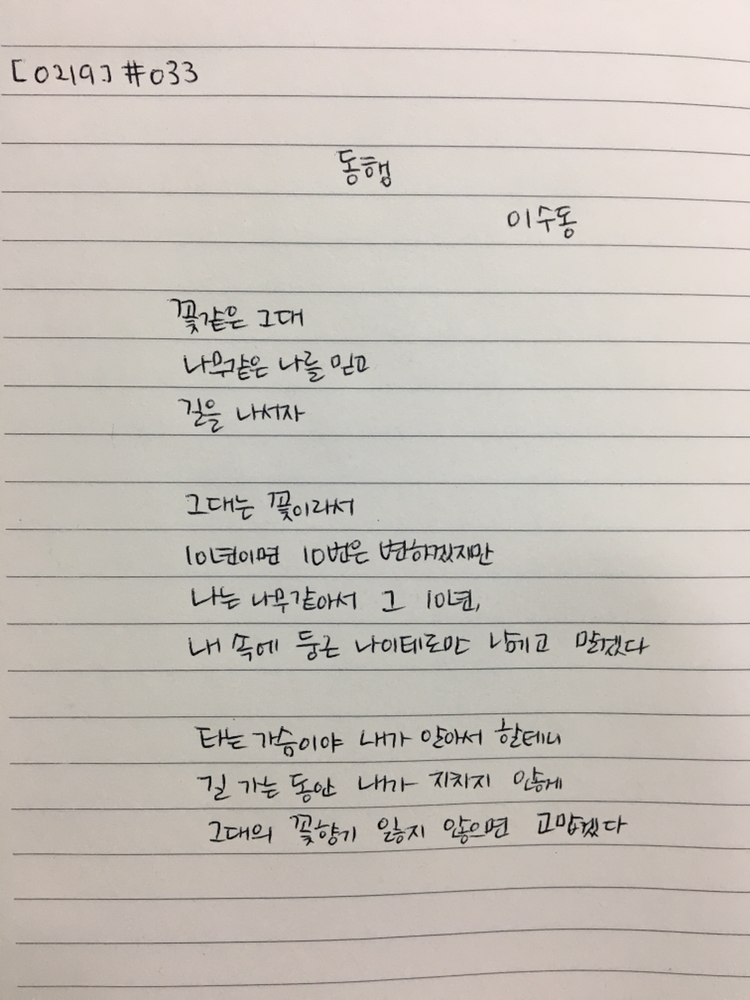 [0219] #033
동행
이수동
꽃같은 그대
나무같은 나를 믿고
길을 나서자
그대는 꽃이라서
10년이면 10번은 변하겠지만
나는 나무같아서 그 10년,
내 속에 둥근 나이테로만 남기고 말겠다
타는 가슴이야 내가 알아서 할테니
길 가는 동안 내가 지치지 않게
그대의 꽃향기 잃지 않으면 고맙겠다